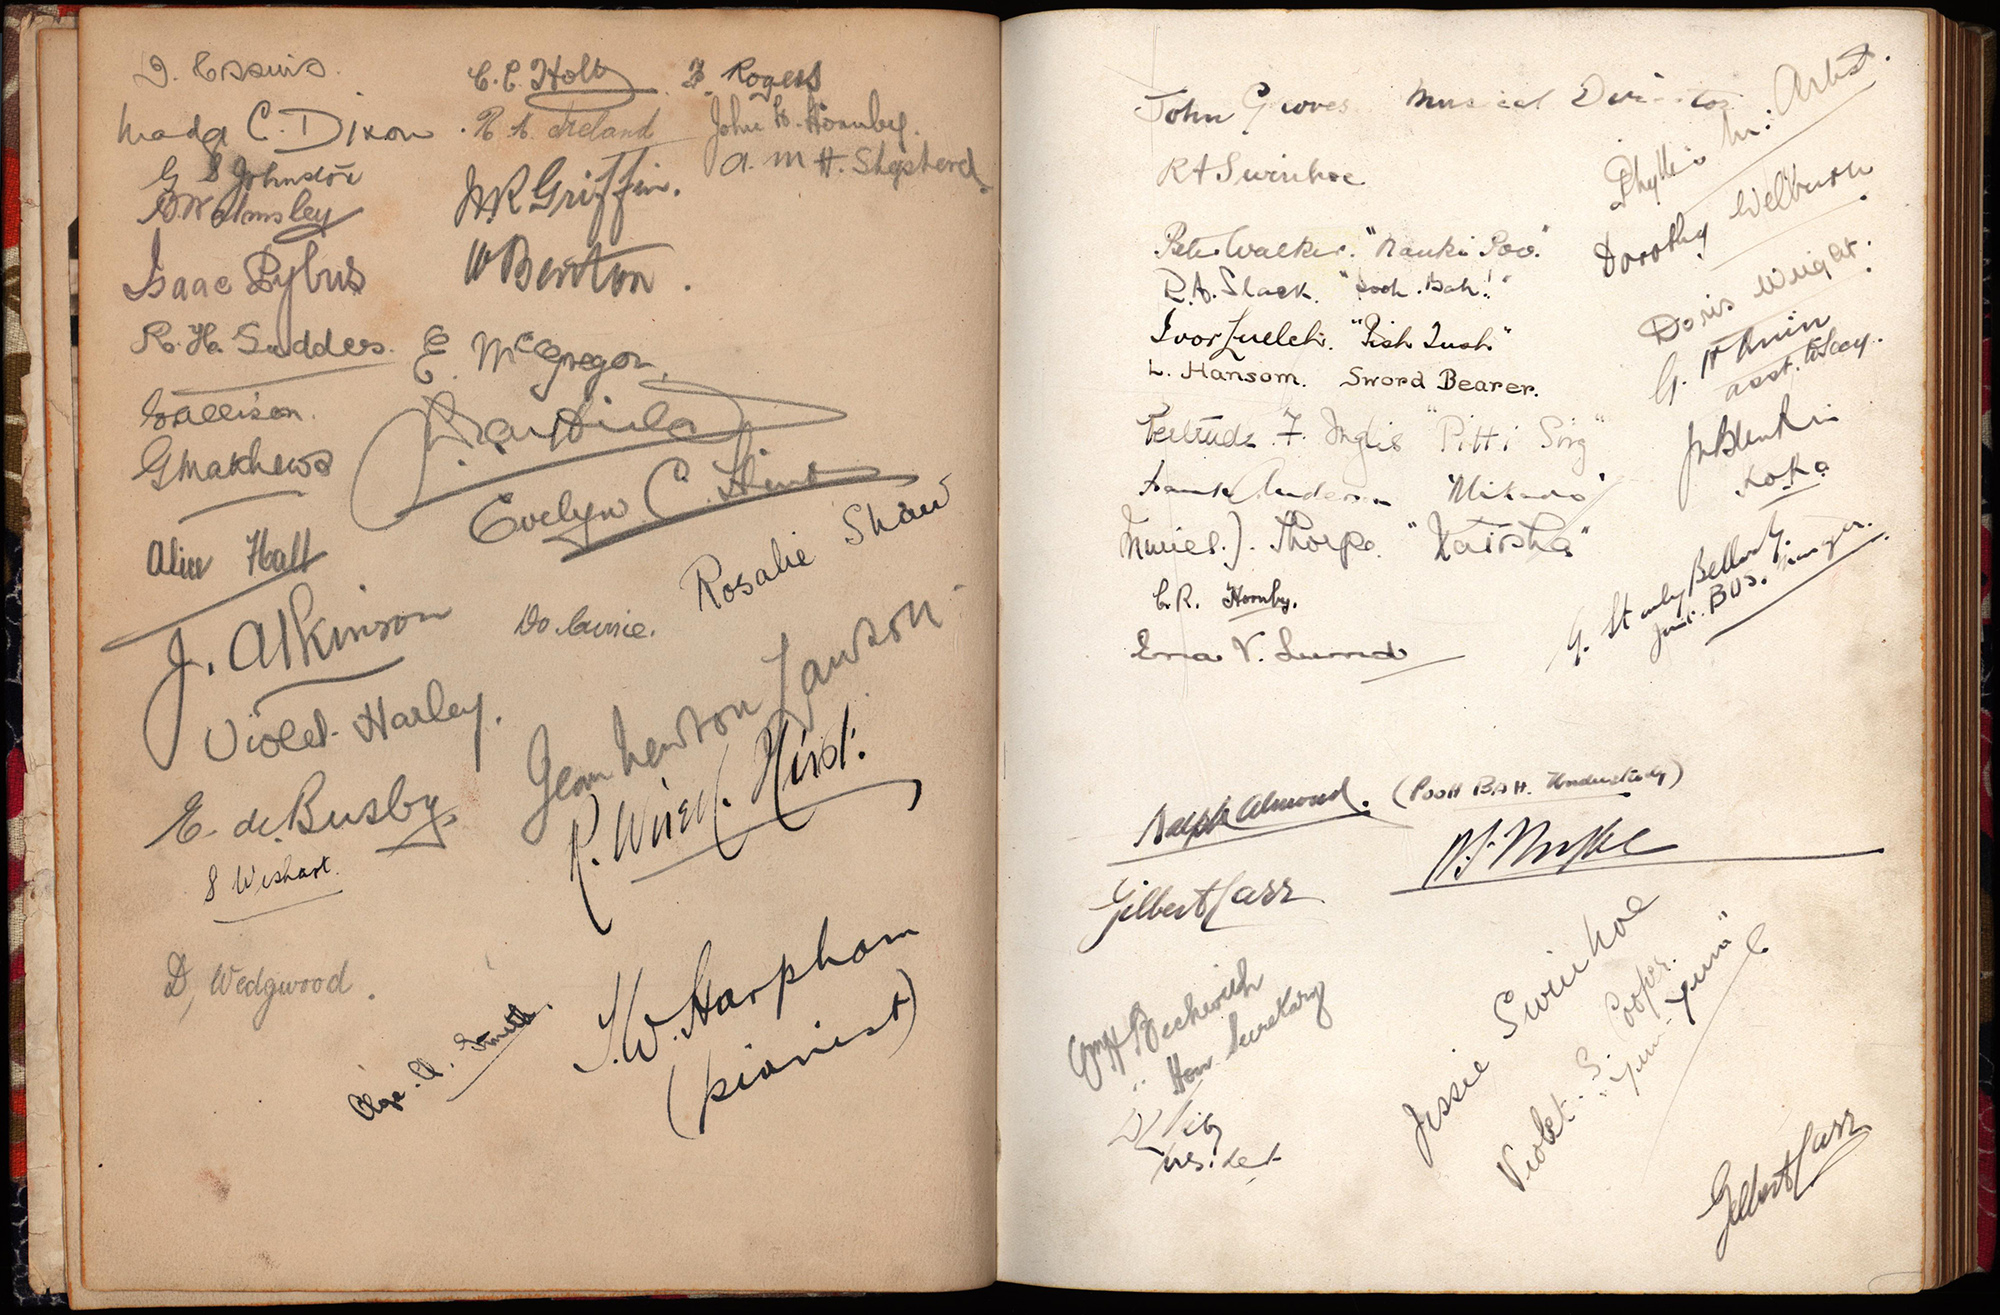 C. C. Holt
F. Rogers
C. Dixon
R. A. Ireland
John H. Hornby.
A. M H. Shepherd
G S Johnstone
J. R Griffin.
A Walmsley
Isaac Pybus
W Benton.
R. H. Sudders.
E. McGregor.
G Allison.
G Mathews
Evelyn C. Flint
Alice Hall
Rosalie Shaw
J. Atkinson
Do Currie.
Violet Harley.
Jean Newton Lawson.
E. de Busby
R. Hirst.
S Wishart.
D, Wedgwood.
Olga. A. Smith.
J. W. Harpham
(pianist)
John Groves Musical Director
Phyllis M. Airst.
R A Swinhoe
Dorothy Welburn.
Peter Walker. "Nanki Poo."
R. A. Slack. "Pooh. Bah!"
Doris Wright.
Ivor "Pish Tush"
L. Hansom. Sword Bearer.
G.
asst. to Secy.
Gertrude F. Inglis "Pitti Sing"
J. Blenkin
KoKo
Frank Anderson "Mikado"
Muriel J. Thorpe. "Katisha"
C. R. Hornby.
G. Stanley
Bus. Manager.
Ena V. Lunnd
Ralph Almond. (POOH BAH. Understudy)
Gilbert Carr
Beckwith
Hon. Secretary
President
Jessie Swinhoe
Violet. S. Cooper.
"Yum-Yum"
Gilbert Carr